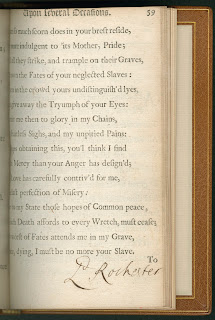 Upon several Occasions. 59
much scorn does in your brest reside,
indulgent to its Mother, Pride;
they strike, and trample on their Graves,
the Fates of your neglected Slaves:
crowd yours undistinguish'd lyes,
away the Tryumph of your Eyes:
me then to glory in my Chains,
Sighs, and my unpitied Pains:
obtaining this, you'l think I find
Mercy than your Anger has design'd;
has carefully contriv'd for me,
perfection of Misery:
my State those hopes of Common peace,
Death affords to every Wretch, must cease;
of Fates attends me in my Grave,
dying, I must be no more your Slave.
To
Ld Rochester